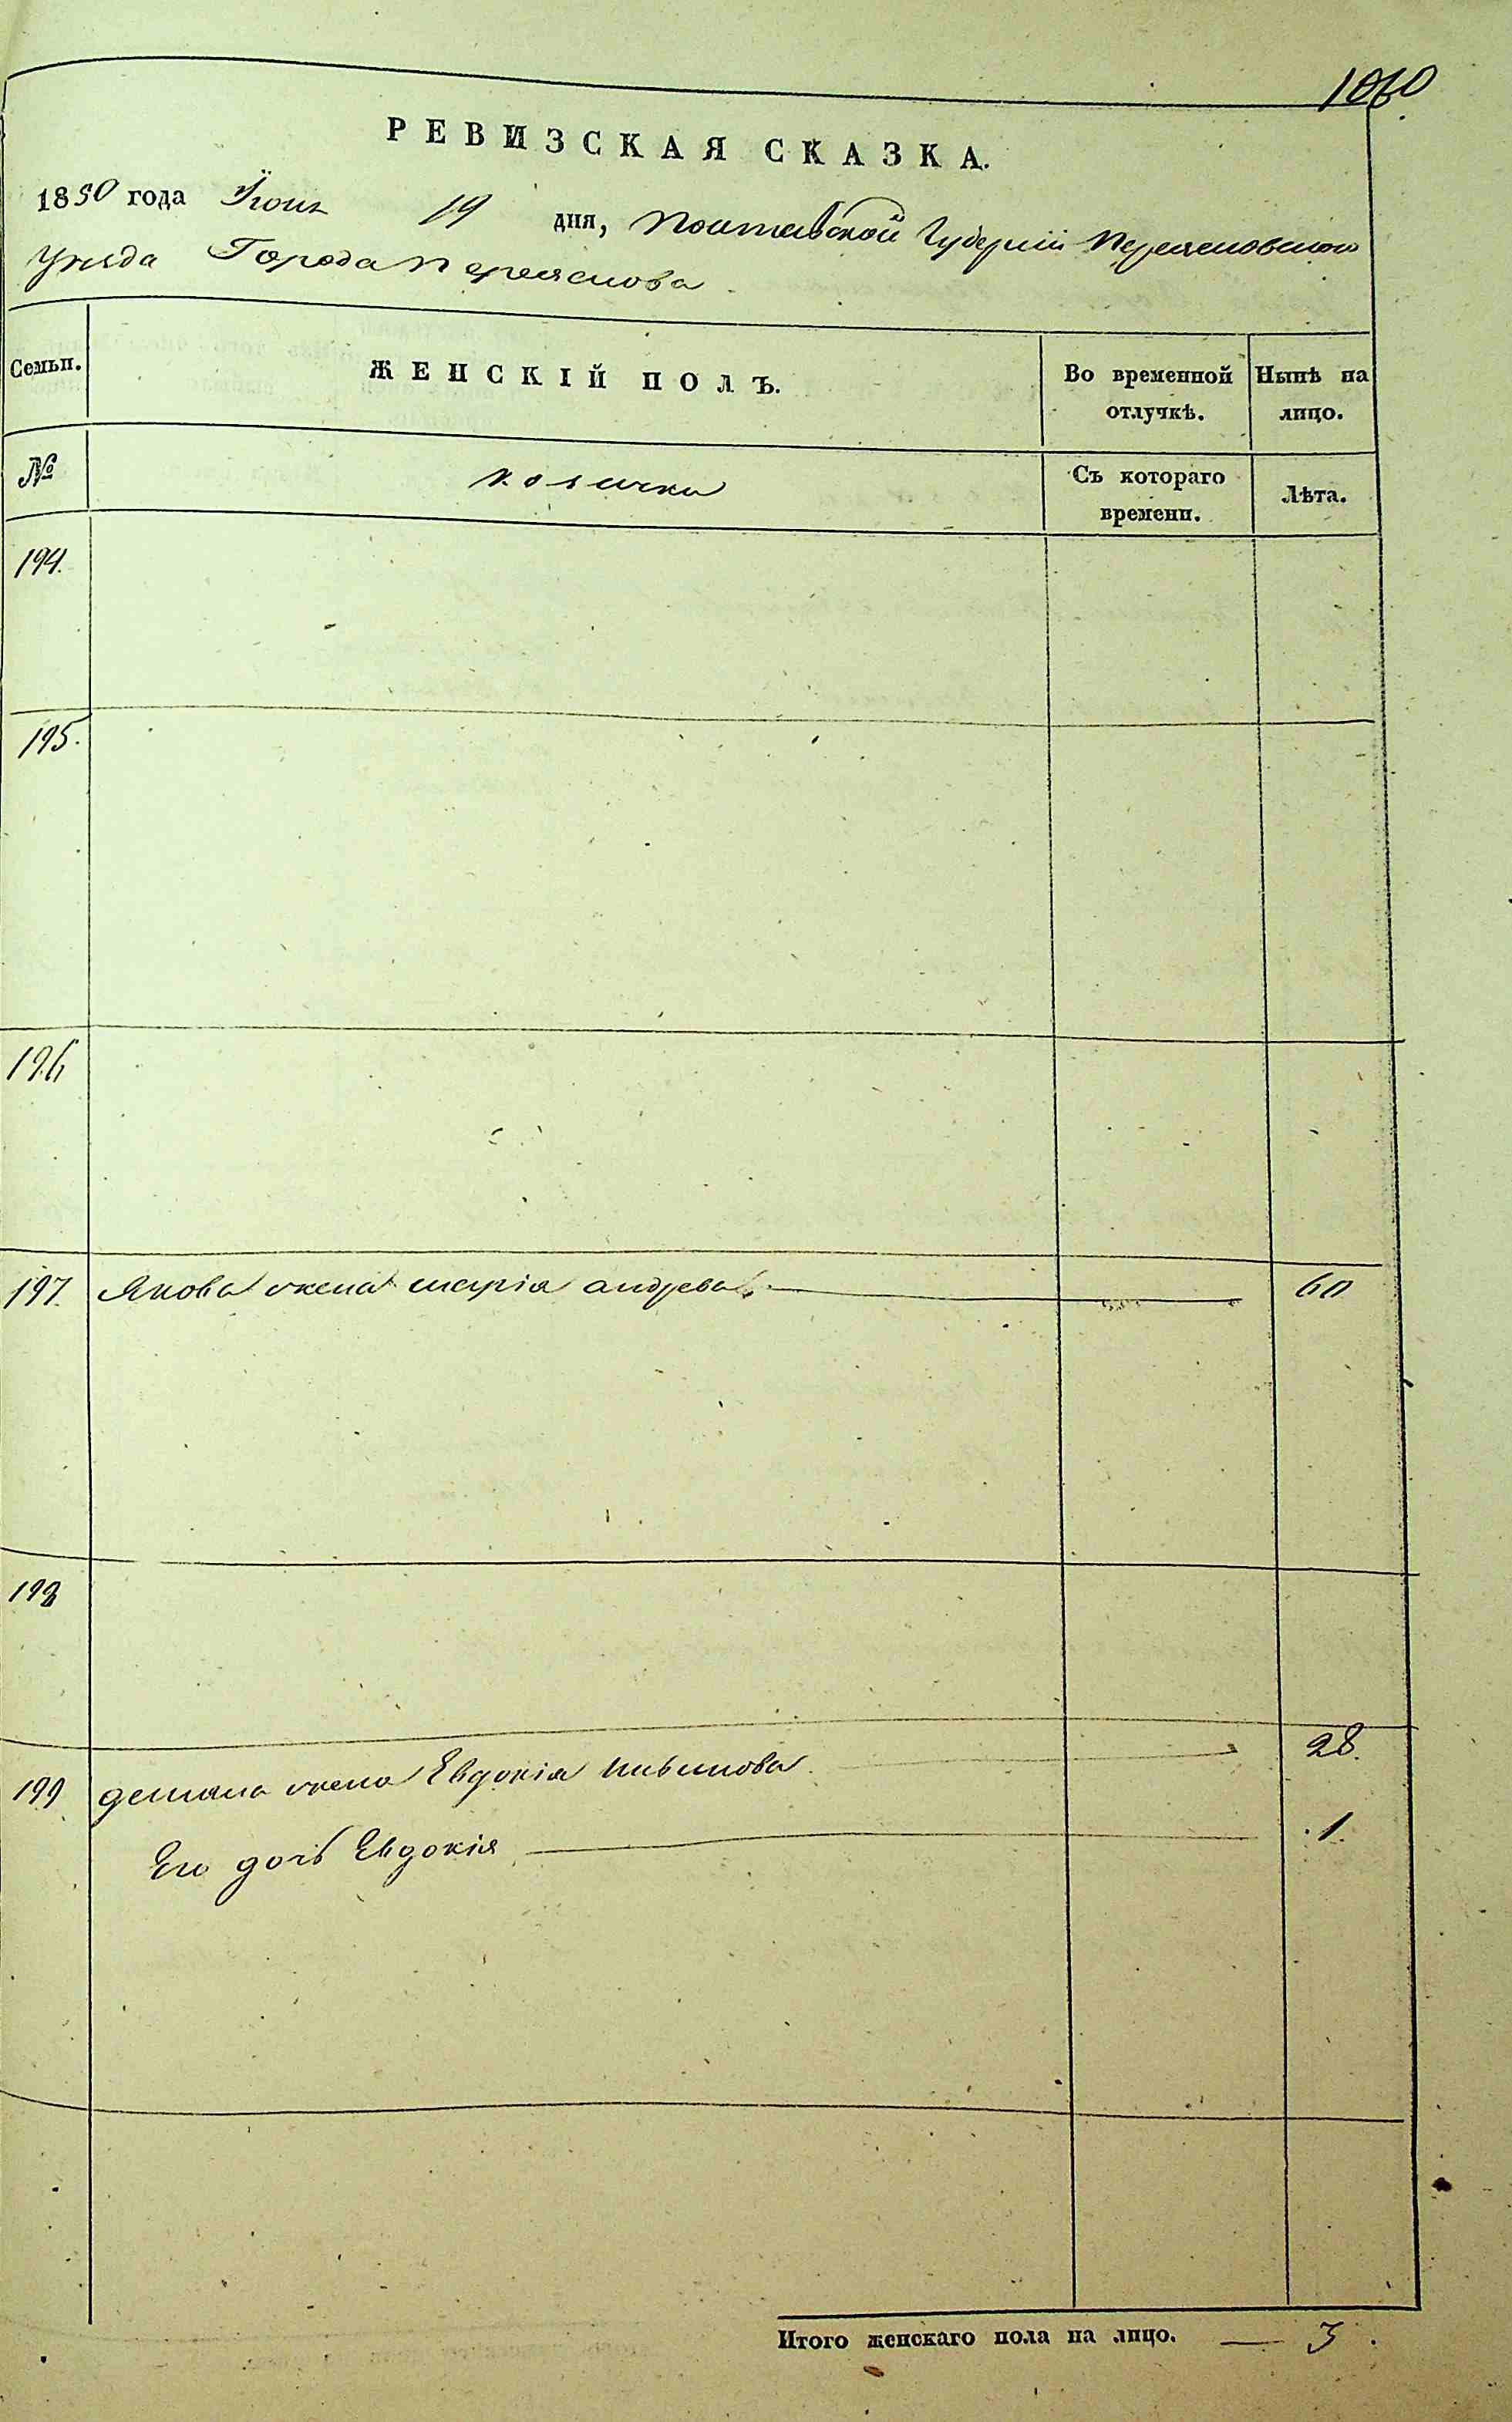 1060
РЕВИЗСКАЯ СКАЗКА.
1850 года Июня 19 дня, Полтавской Губерніи Переясловского
уезда Города Переяслова
Семьи. ЖЕНСКІЙ ПОЛЪ. Во временной отлучкѣ. Нынѣ на лицо.
№ козачки Съ котораго времени. Лѣта.
194.
195.
196
197. Якова жена марія андреева 60
198
199 демяна жена Евдокія 28.
Его дочь Евдокія 1.
Итого женскаго пола на лицо. — 3.